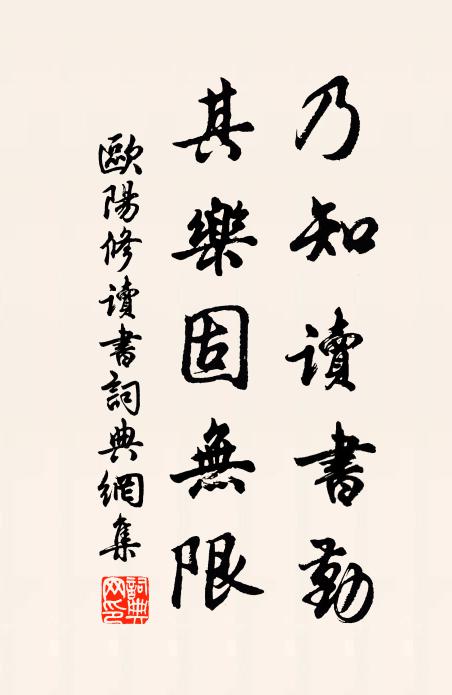 乃知讀書勤
其樂固無限
歐陽修讀書詞典網集
詞典網印